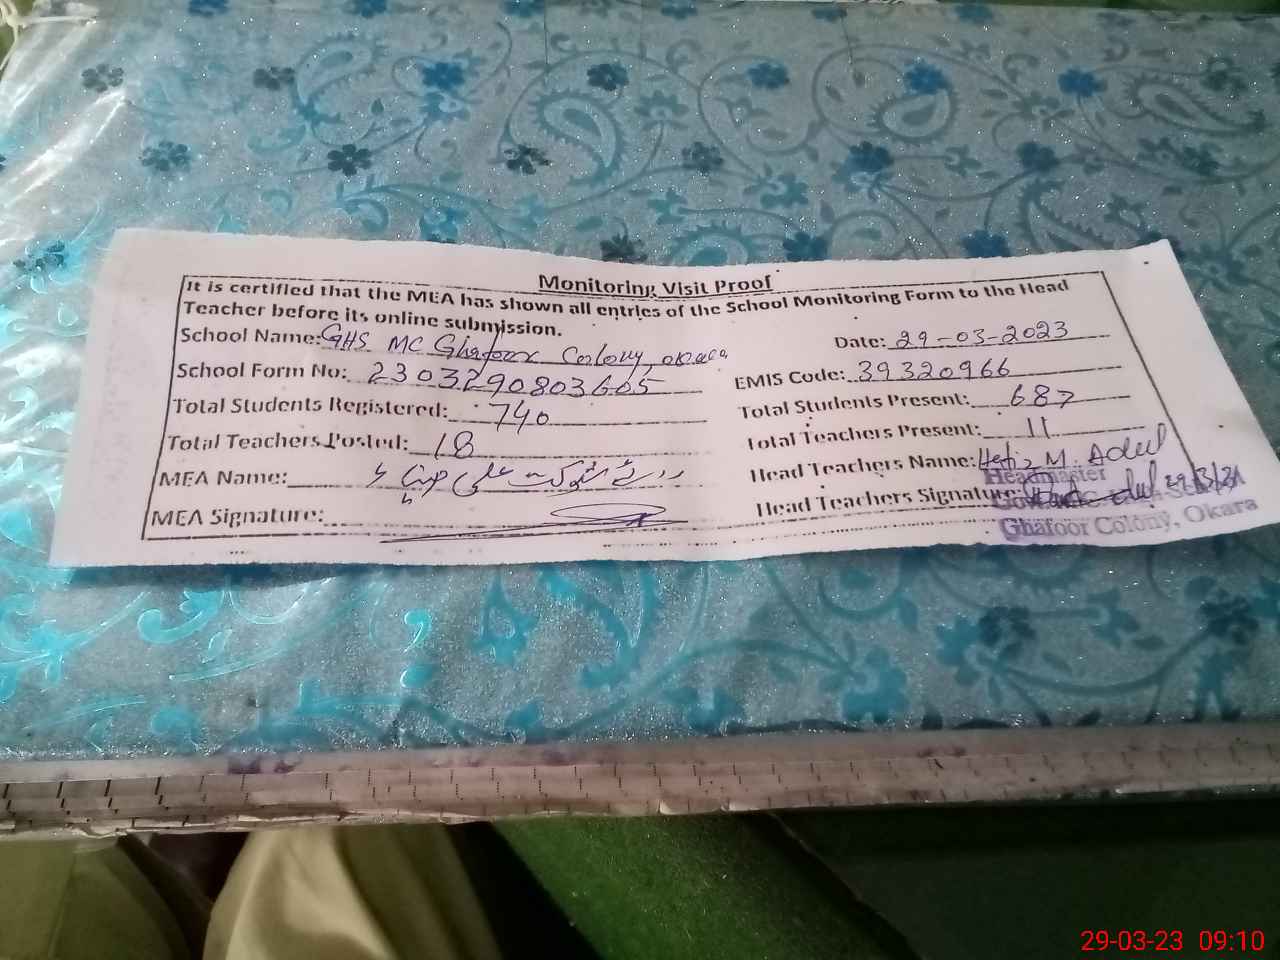 Monitoring Visit Proof
It is certified that the MEA has shown all entries of the School Monitoring Form to the Head
Teacher before its online submission.
School Name: GHS MC Ghafoor Colony, okara
Date: 29-03-2023
School Form No: 2303290803605
EMIS Code: 39320966
Total Students Registered: 740
Total Students Present: 687
Total Teachers Posted: 18
Total Teachers Present: 11
MEA Name:
Head Teachers Name: Hafiz M.
MEA Signature:
Head Teachers Signature:
Headmaster
Ghafoor Colony, Okara
29-03-23 09:10